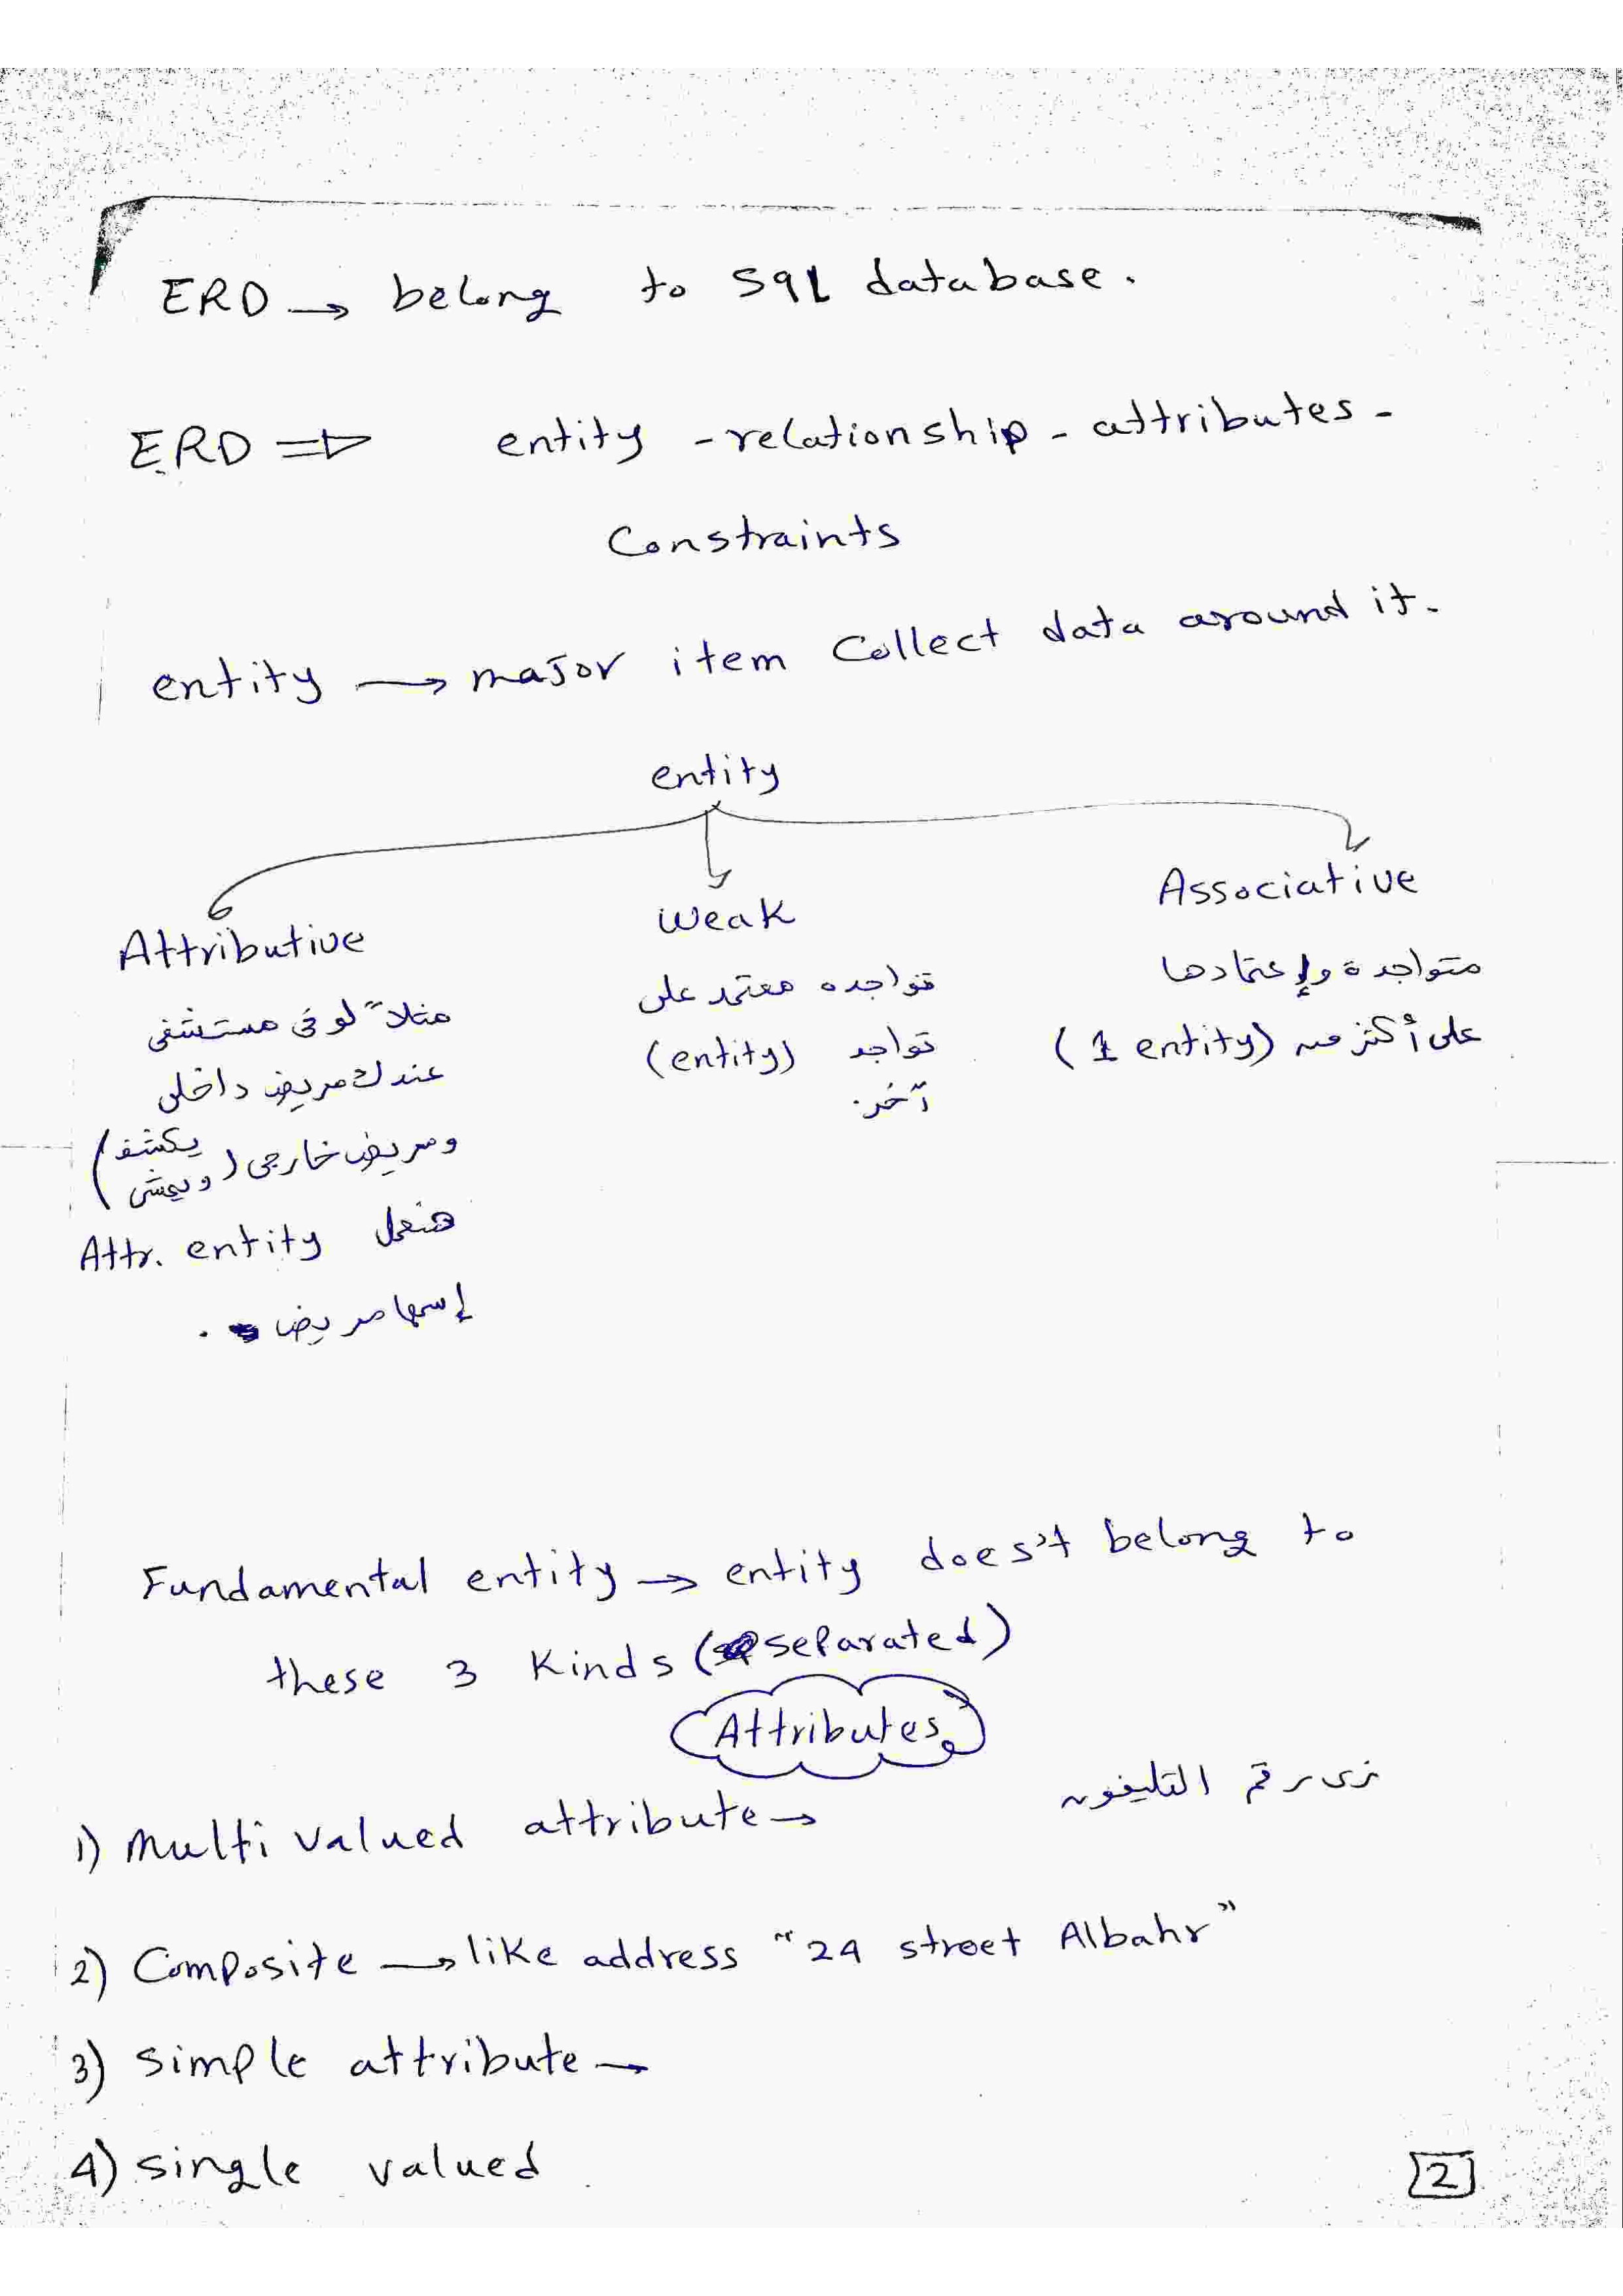 ERD → belong to SQL database.
ERD ⇒ entity - relationship - attributes -
Constraints
entity → major item Collect data around it.
entity
Attributive
مثلاً لو فى مستشفى
عندك مريض داخلى
ومريض خارجى (يكشف
ويمشى)
هنعمل Attr. entity
إسمها مريض .
Weak
تواجده معتمد على
تواجد (entity)
آخر.
Associative
متواجدة وإعتمادها
على أكثر من (1 entity)
Fundamental entity → entity does't belong to
these 3 Kinds (separated)
Attributes
1) Multi valued attribute → زى رقم التليفون
2) Composite → like address "24 street Albahr"
3) Simple attribute →
4) Single valued
2